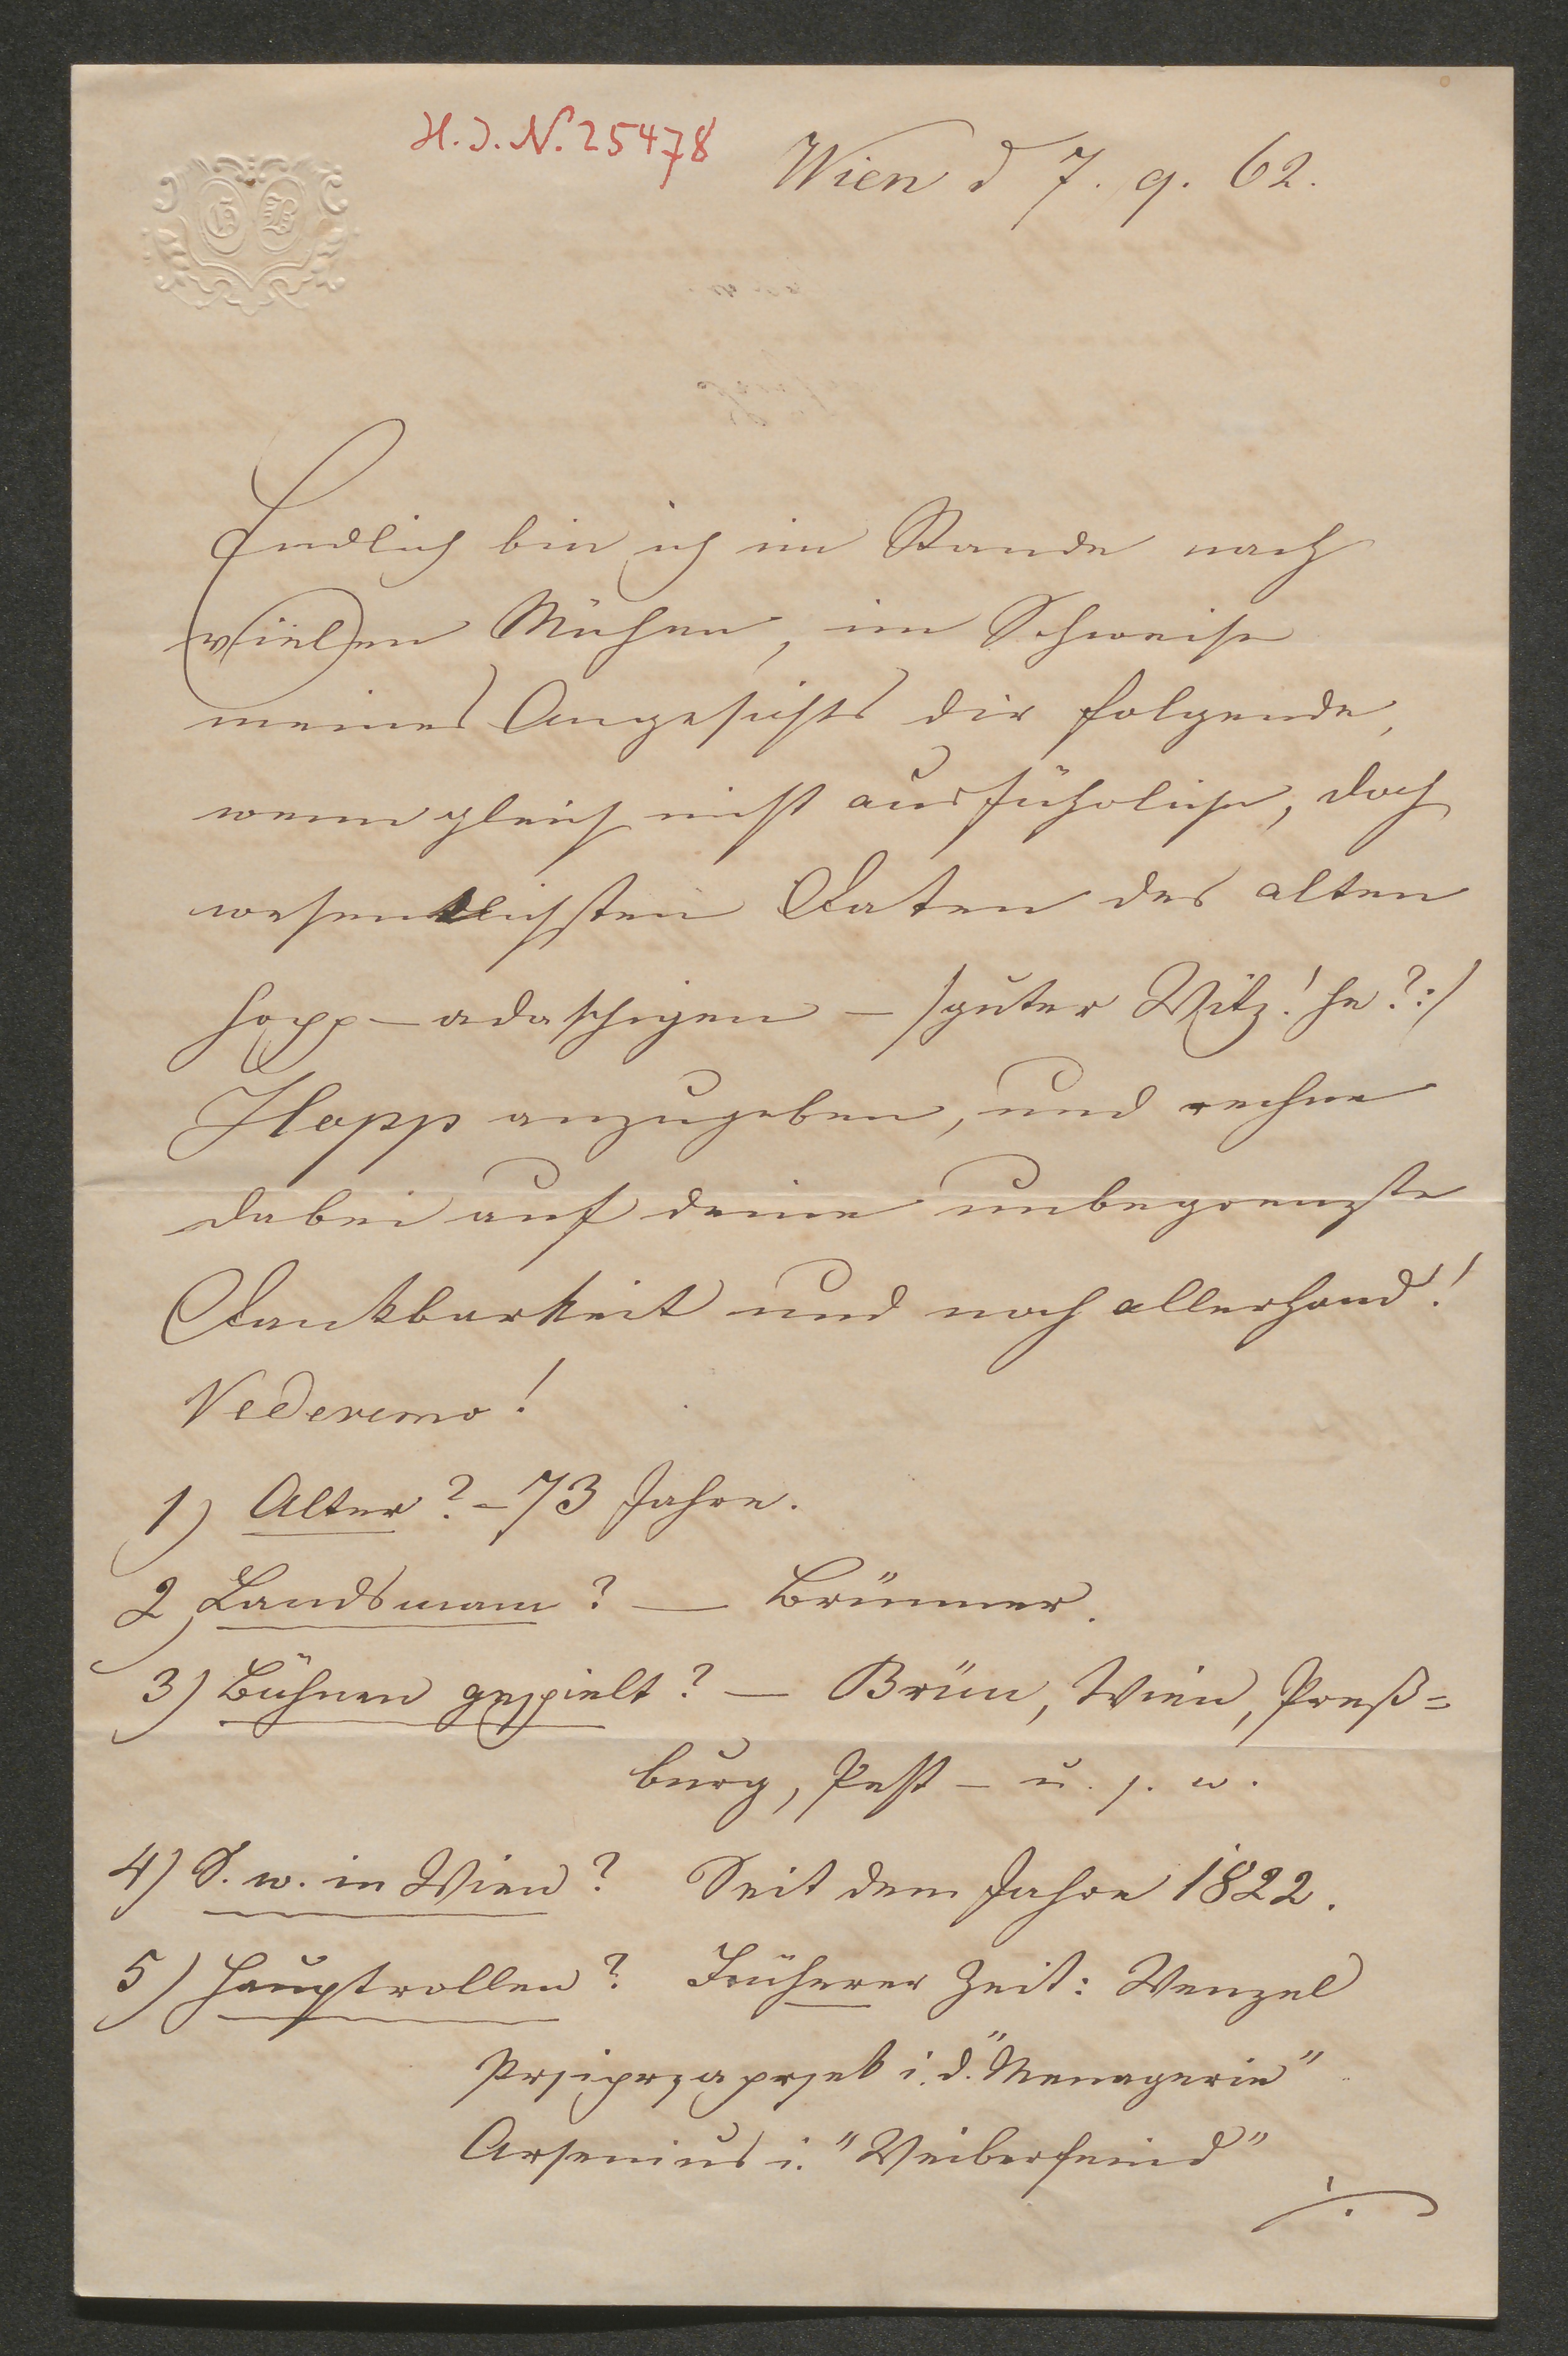 H. I. N. 25478
Wien d 7. 9. 62.
G B
Endlich bin ich im Stande nach
vielen Mühen, im Schweiße
meines Angesichts dir folgende,
wenn gleich nicht ausführliche, doch
wesentlichsten Daten des alten
hopp-adaschigen – /guter Witz! he?:/
Hopp anzugeben, und rechne
dabei auf deine unbegrenzte
Dankbarkeit und noch allerhand!
Vederemo!
1) Alter? – 73 Jahre.
2) Landsmann? – Brünner.
3) Bühnen gespielt? – Brünn, Wien, Preß=
burg, Pest – u. s. w.
4) S. w. in Wien? Seit dem Jahre 1822.
5) Hauptrollen? Früherer Zeit: Wenzel
Prziprzaprzek i. d. "Menagerie"
Arsenius i. "Weiberfeind"
./.